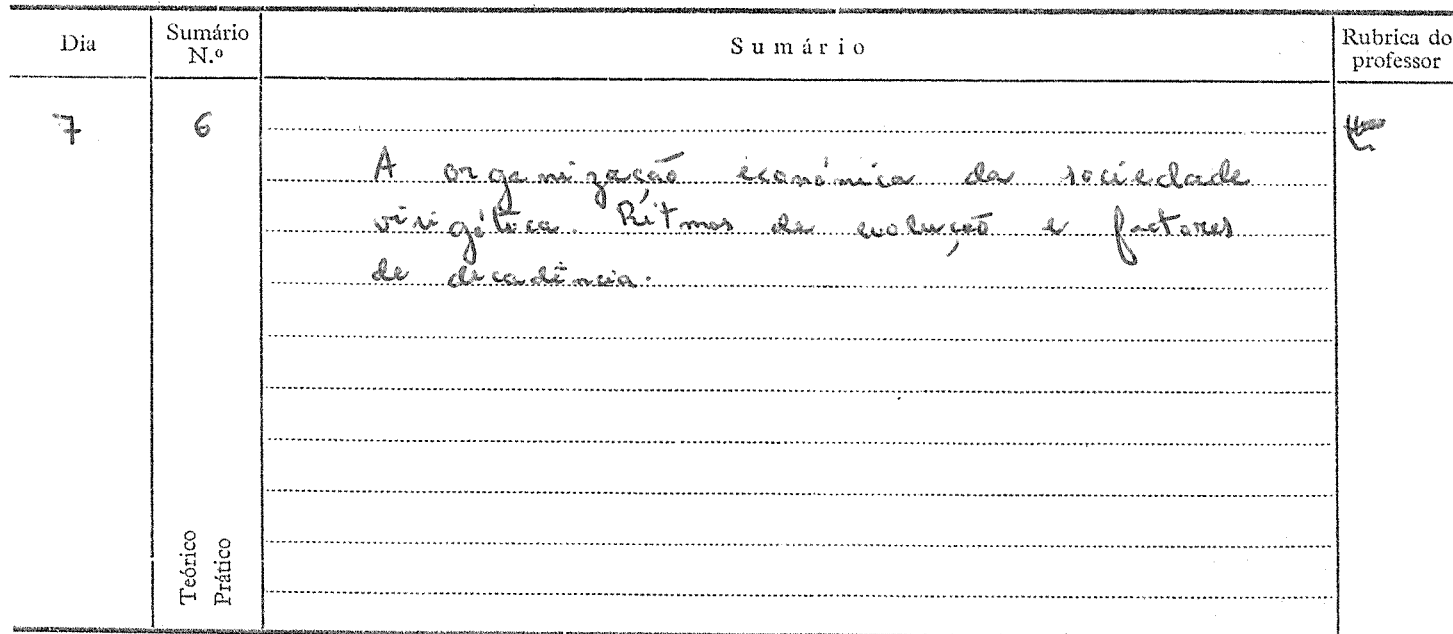 Dia
Sumário N.º
Sumário
Rubrica do professor
7
6
A organização económica da sociedade
visigótica. Rítmos de evolução e factores
de decadência.
Teórico
Prático